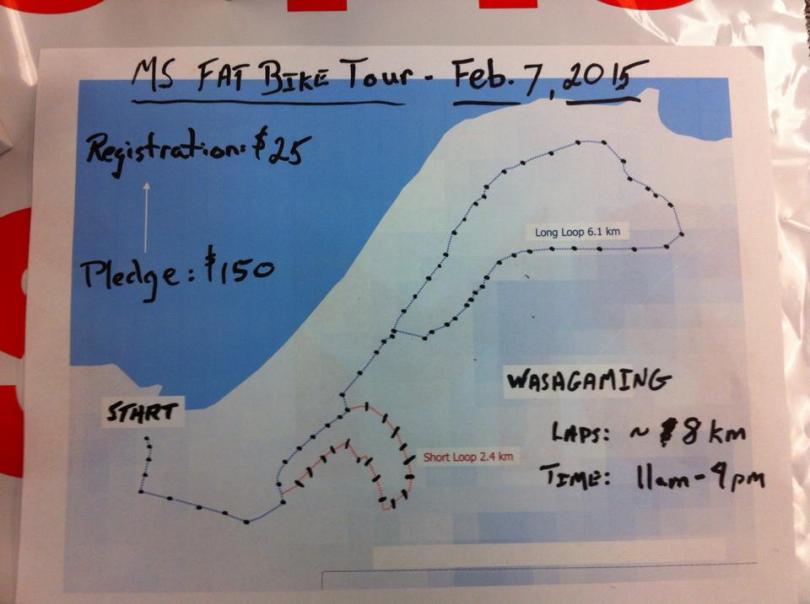 MS FAT BIKE TOUR - Feb. 7, 2015
Registration: $25
Pledge: $150
Long Loop 6.1 km
WASAGAMING
START
LAPS: ~ 8 km
Short Loop 2.4 km
TIME: 11am - 9pm